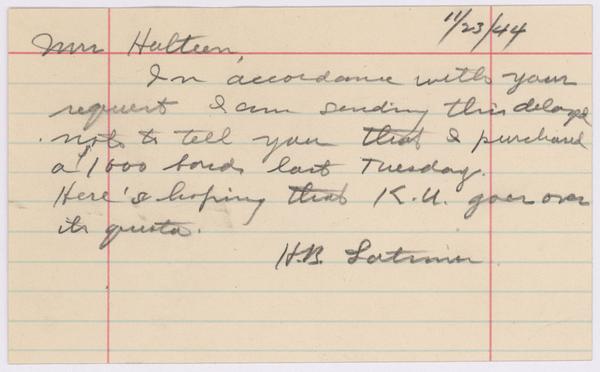 11/23/44
Mrs Hulteen,
In accordance with your
request I am sending this delayed
note to tell you that I purchased
a $1000 bond last Tuesday.
Here's hoping that K.U. goes over
its quota.
H.B. Latimer